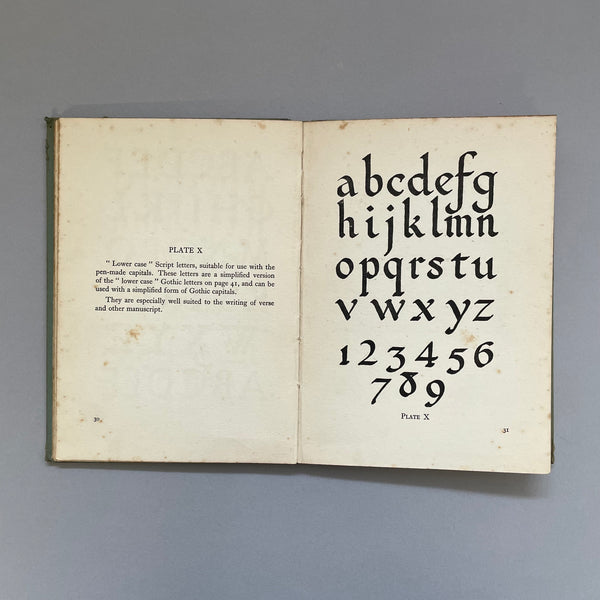 PLATE X
" Lower case " Script letters, suitable for use with the
pen-made capitals. These letters are a simplified version
of the " lower case " Gothic letters on page 41, and can be
used with a simplified form of Gothic capitals.
They are especially well suited to the writing of verse
and other manuscript.
30
abcdefg
hijklmn
opqrstu
vwxyz
123456
789
PLATE X
31